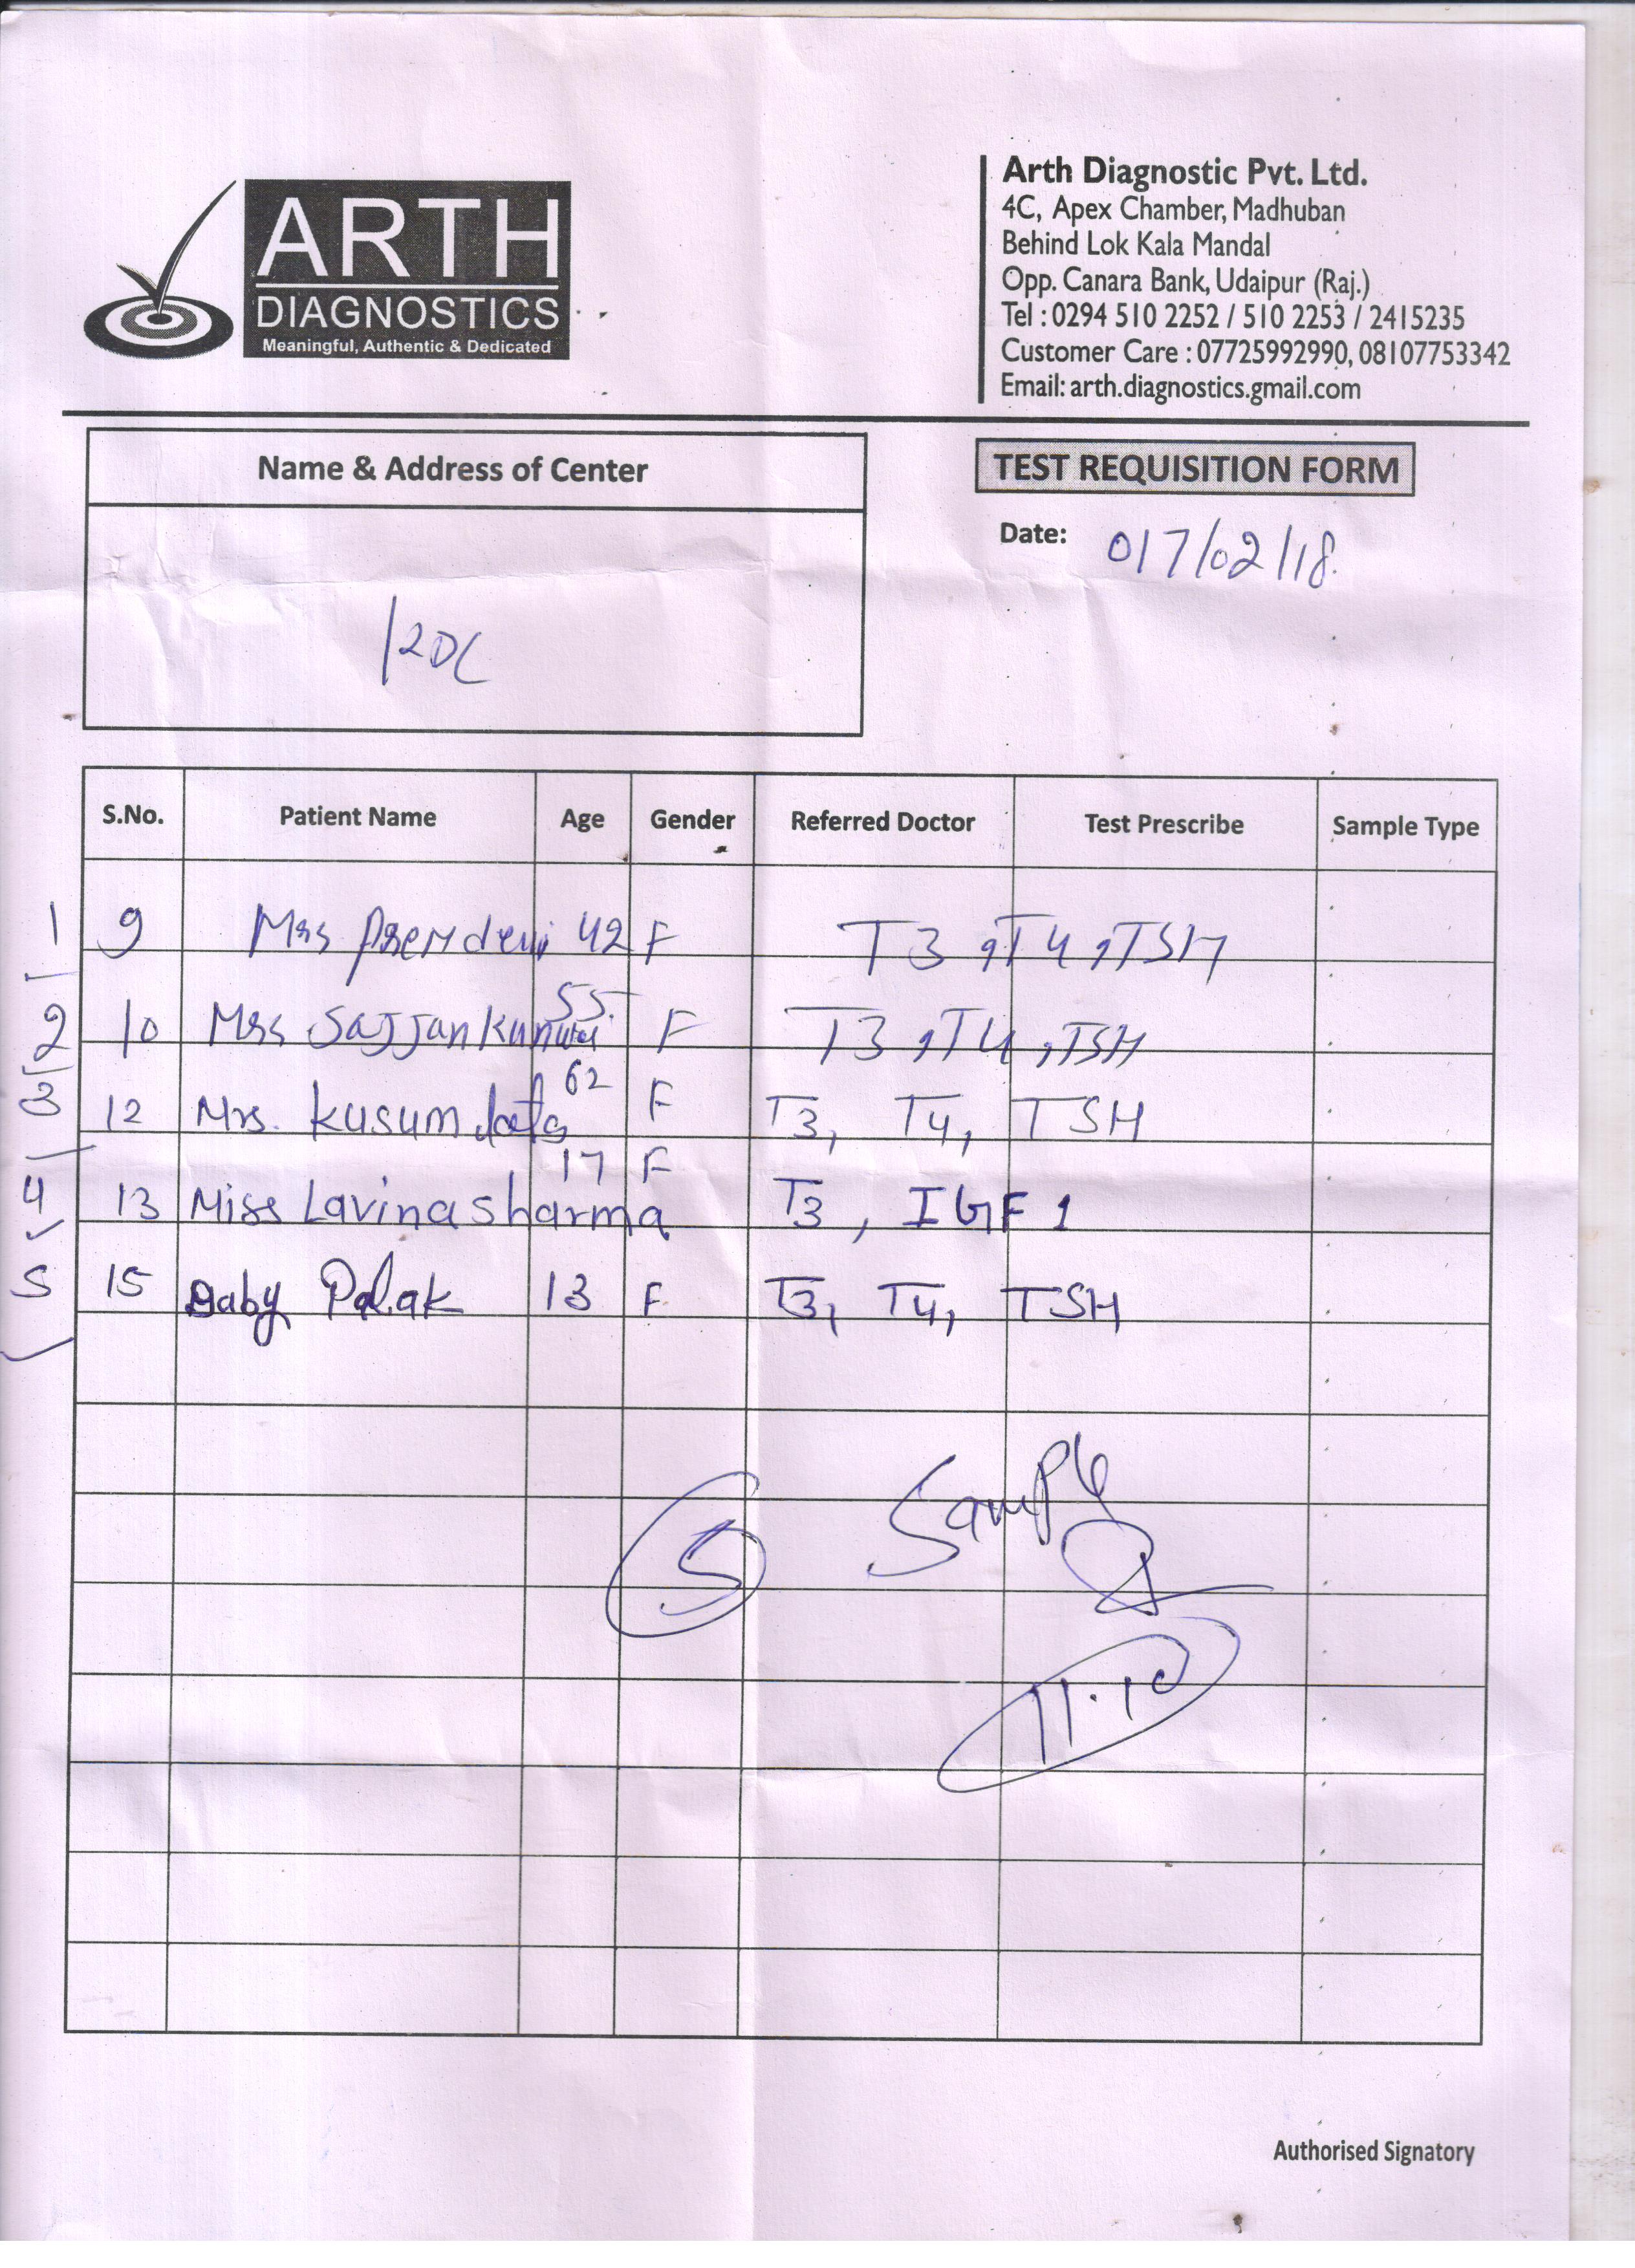 ARTH
DIAGNOSTICS
Meaningful, Authentic & Dedicated
Arth Diagnostic Pvt. Ltd.
4C, Apex Chamber, Madhuban
Behind Lok Kala Mandal
Opp. Canara Bank, Udaipur (Raj.)
Tel : 0294 510 2252 / 510 2253 / 2415235
Customer Care : 07725992990, 08107753342
Email: arth.diagnostics.gmail.com
Name & Address of Center
TEST REQUISITION FORM
Date: 017/02/18.
S.No. Patient Name Age Gender Referred Doctor Test Prescribe Sample Type
1 9 Mrs Prem devi 42 F T3, T4, TSH
2 10 Mrs Sajjan Kunwar 55. F T3, T4, TSH
3 12 Mrs. Kusum lata 62 F T3, T4, TSH
4 13 Miss Lavina Sharma 17 F T3, IGF 1
5 15 Baby Palak 13 F T3, T4, TSH
5 Sample
11.10
Authorised Signatory